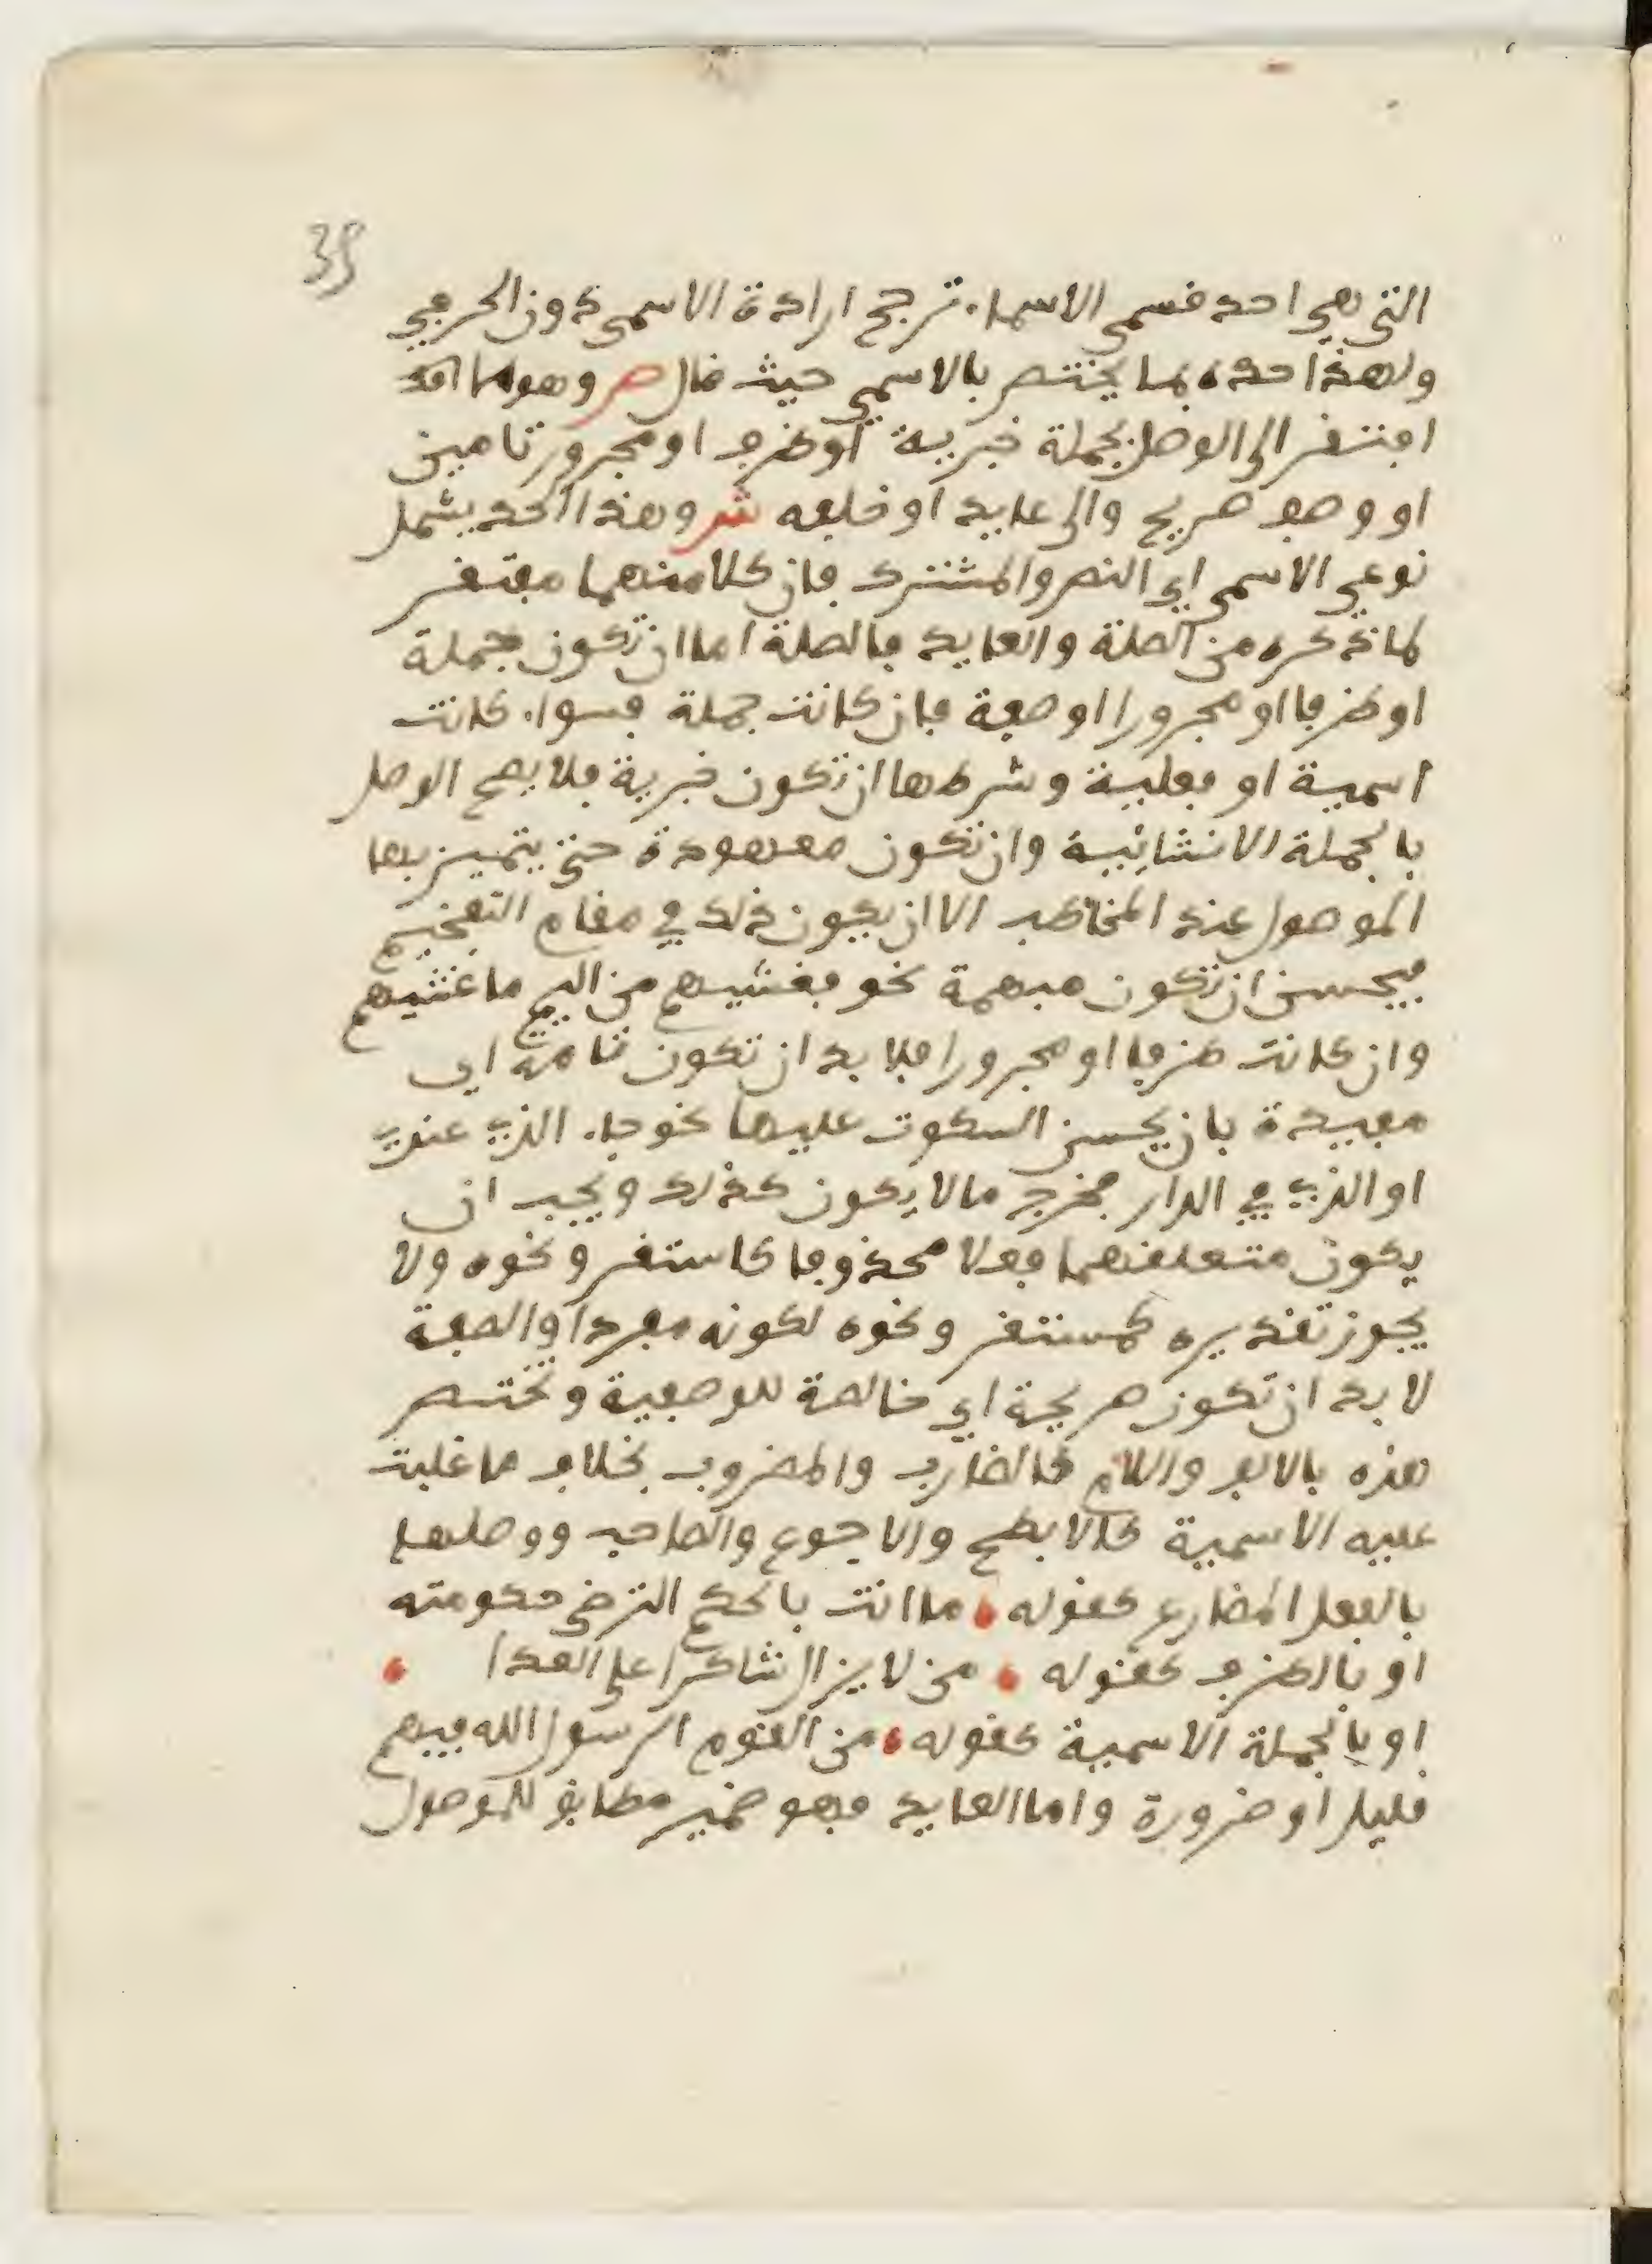 39
التي هي احد قسمي الاسماء ترجح ارادة الاسمي دون الحرفي
ولهذا حده بما يختص بالاسمي حيث قال ص وهو ما
افتقر الى الوصل بجملة خبرية او ظرف او مجرور تامين
او وصف صريح والى عايد او خلفه ش وهذا الحد يشمل
نوعي الاسمي اي النص والمشترك فان كلا منهما مفتقر
لما ذكره من الصلة والعايد فالصلة اما ان تكون جملة
او ظرفا او مجرورا او صفة فان كانت جملة فسواء كانت
اسمية او فعلية وشرطها ان تكون خبرية فلا يصح الوصل
بالجملة الانشائية وان تكون معهودة حتى يتميز بها
الموصول عند المخاطب الا ان يكون ذلك في مقام التفخيم
فيحسن ان تكون مبهمة نحو فغشيهم من اليم ما غشيهم
وان كانت ظرفا او مجرورا فلا بد ان تكون تامة اي
مفيدة بان يحسن السكوت عليها نحو جاء الذي عندي
او الذي في الدار فخرج ما لا يكون كذلك ويجب ان
يكون متعلقهما فعلا محذوفا كاستقر ونحوه ولا
يجوز تقديره كمستقر ونحوه لكونه مفردا والصفة
لا بد ان تكون صريحة اي خالصة للوصفية وتختص
هذه بالالف واللام كالضارب والمضروب بخلاف ما غلبت
عليه الاسمية كالابطح والاجرع والصاحب ووصلها
بالفعل المضارع كقوله ما انت بالحكم الترضى حكومته
او بالظرف كقوله من لا يزال شاكرا على المعه
او بالجملة الاسمية كقوله من القوم الرسول الله فيهم
قليل او ضرورة واما العايد فهو ضمير مطابق للموصول